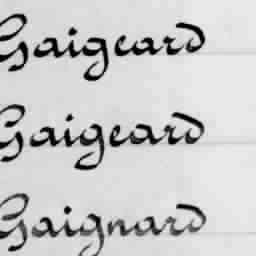 Gaigeard
Gaigeard
Gaignard